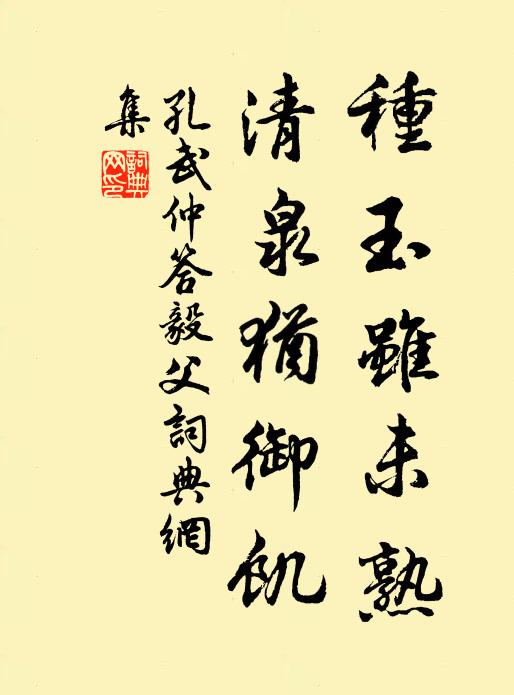 種玉雖未熟
清泉猶御飢
孔武仲答毅父詞典網
集
詞典
网印